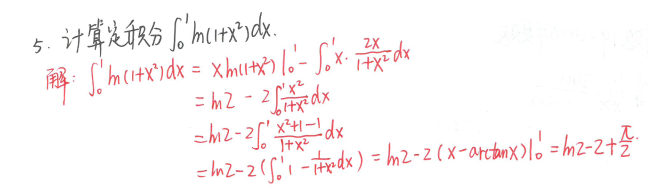 5. 计算定积分 ∫₀¹ ln(1+x²)dx.
解: ∫₀¹ ln(1+x²)dx = xln(1+x²)|₀¹ - ∫₀¹ x· 2x/(1+x²) dx
= ln2 - 2∫₀¹ x²/(1+x²) dx
= ln2 - 2∫₀¹ (x²+1-1)/(1+x²) dx
= ln2 - 2(∫₀¹ 1 - 1/(1+x²) dx) = ln2 - 2(x - arctanx)|₀¹ = ln2 - 2 + π/2.